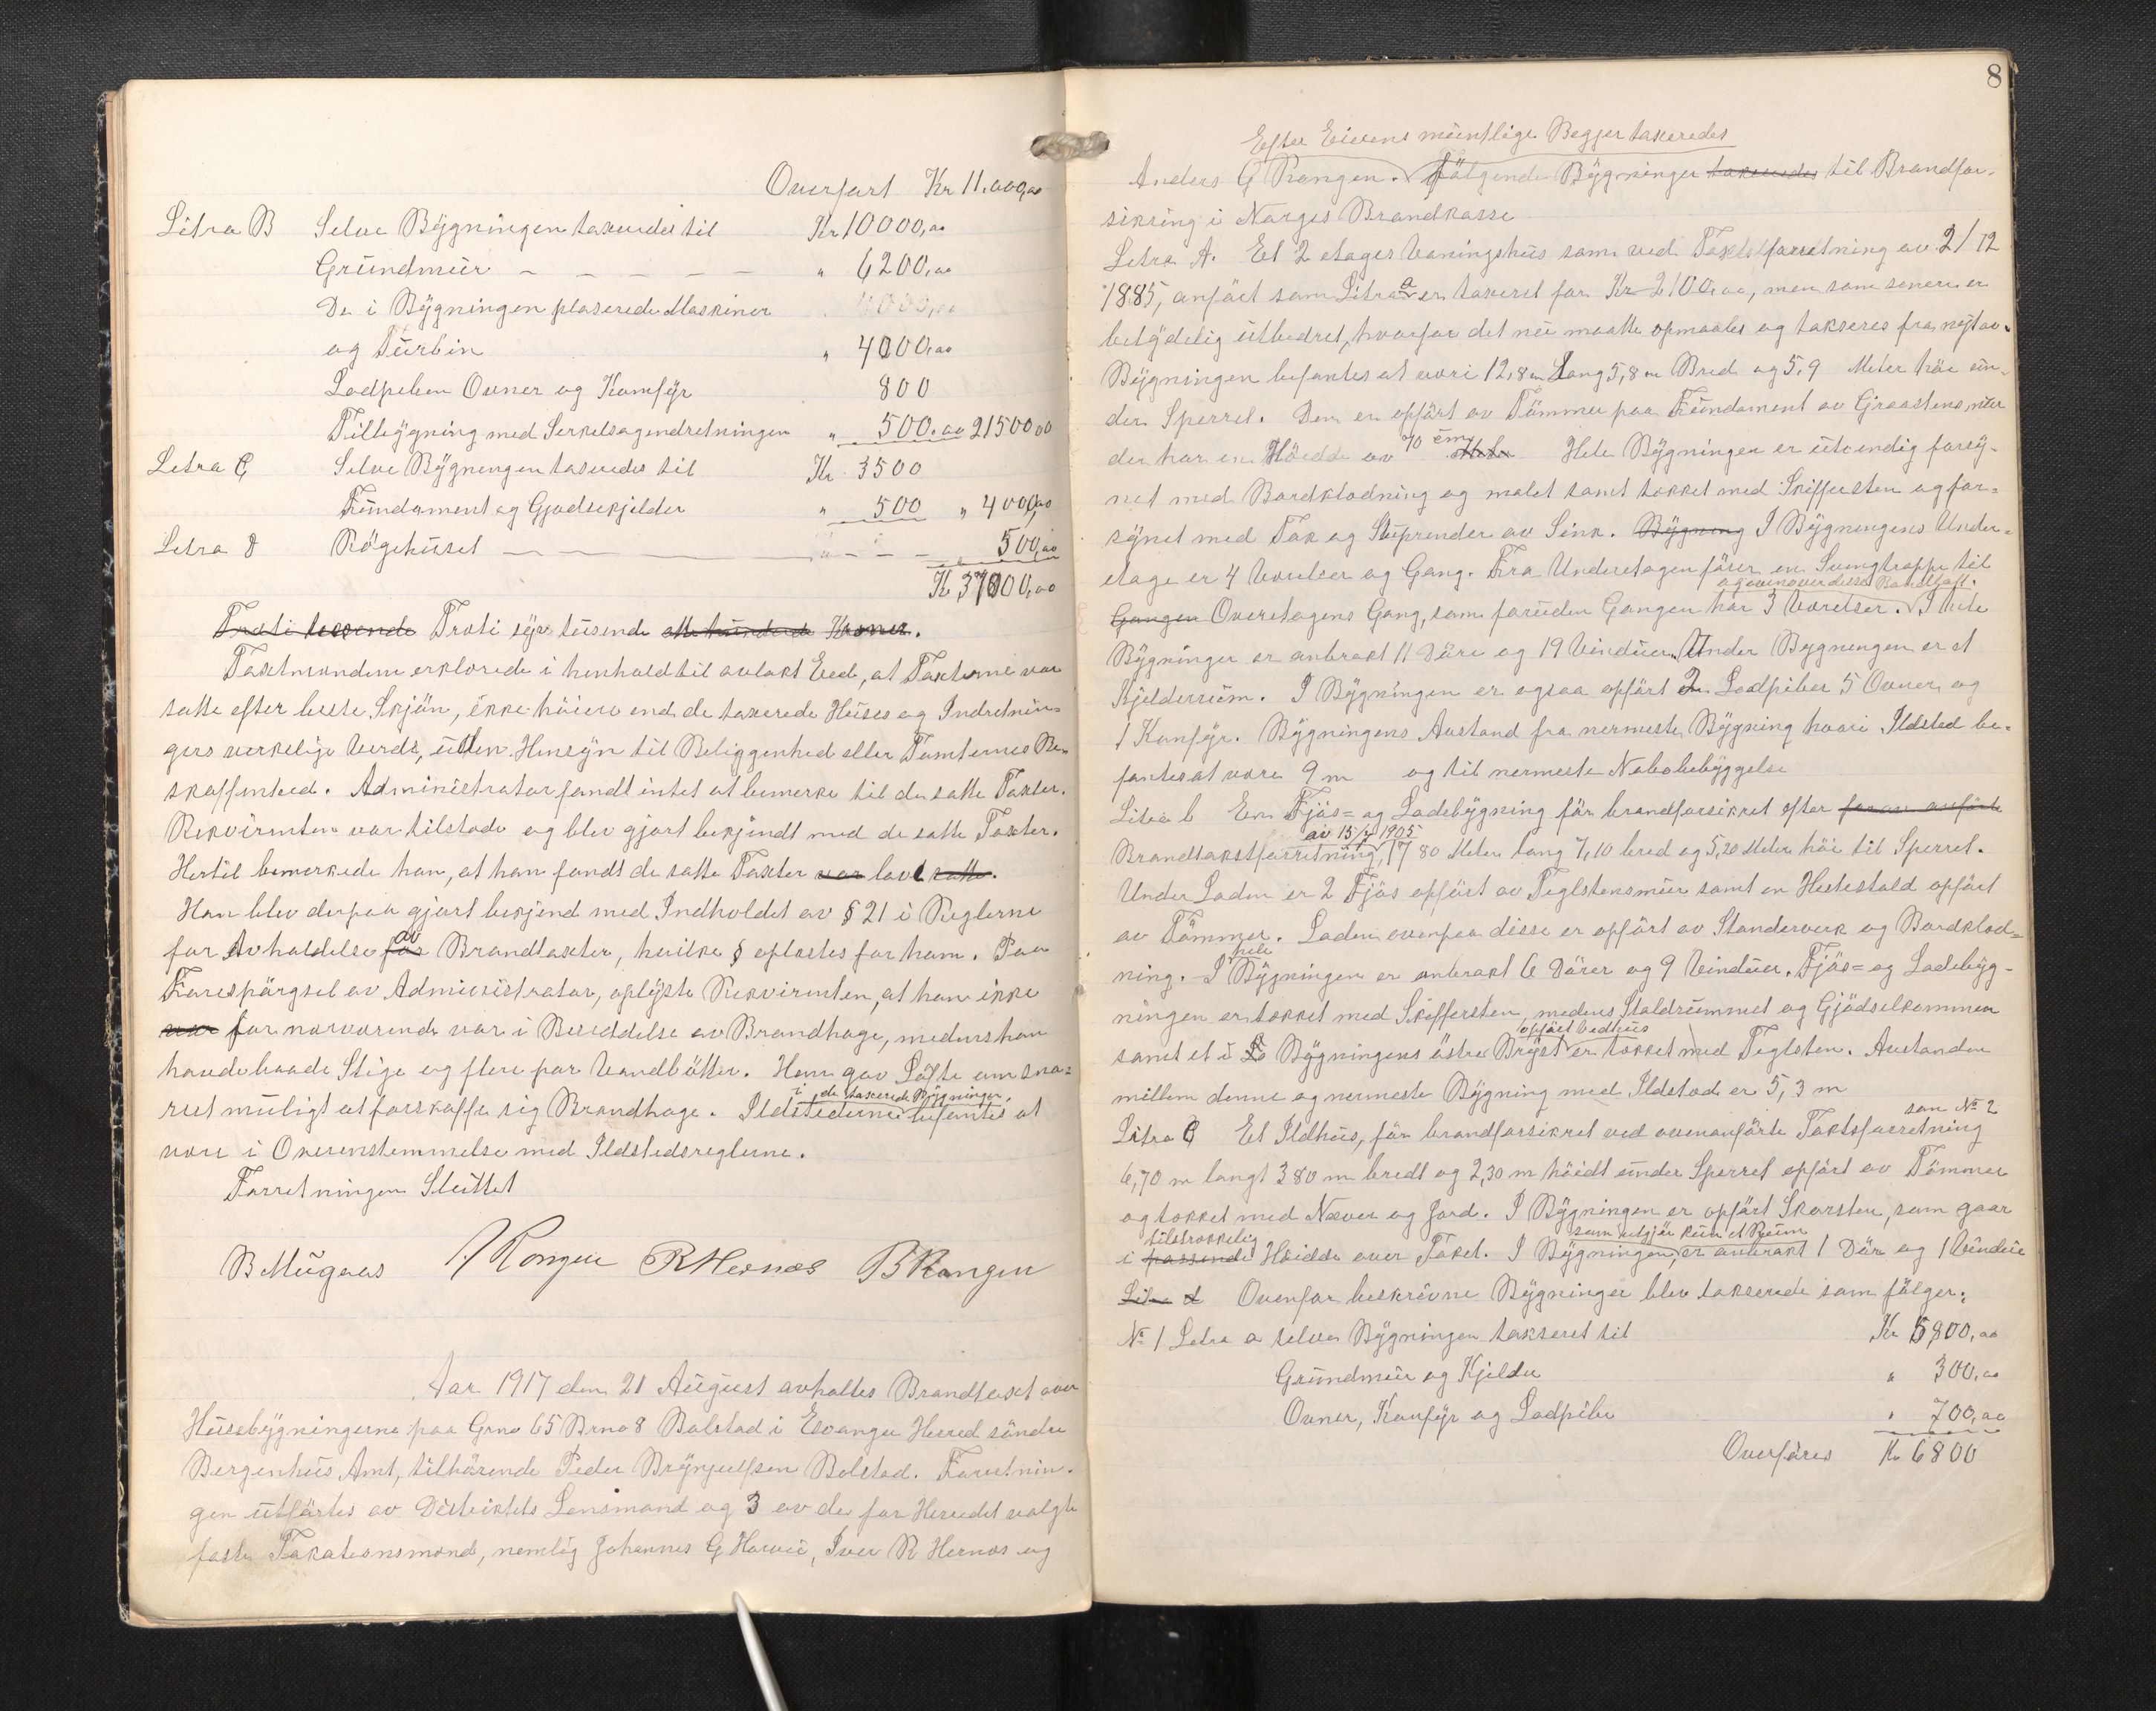 Overført Kr 11.000,00
Litra B Selve Bygningen taxeredes til Kr 10000,00
Grundmur " 6200,00
De i Bygningen plaserede Maskiner
og Turbin " 4000,00
Lodpiben Ovner og Komfyr 800
Tilbygning med Serkelsagendretningen " 500.00 21500 00
Litra C Selve Bygningen taxeredes til Kr 3500
Fundament og Gjødsekjelder " 500 " 4000,00
Litra D Røgehuset 500,00
Kr 37000,00
Treti tusende Treti syv tusende otte hundrede Kroner.
Taxtmændene erklærede i henhold til avlakt Eed, at Taxterne var
satte efter beste Skjøn, ikke høiere end de taxerede Huses og Indretnin=
gers verkelige Verde, uden Hensyn til Beliggenhed eller Tomternes Be=
skaffenhed. Administrator fandt intet at bemerke til de satte Taxter.
Rekvirenten var tilstede og blev gjort bekjendt med de satte Taxter.
Hertil bemerkede han, at han fandt de satte Taxter var lavt satte.
Han blev derpaa gjort bekjend med Indholdet av § 21 i Reglerne
for Avholdelse for av Brandtaxter, hvilke § oplæstes for ham. Paa
Forespørgsel av Administrator, oplyste Rekvirenten, at han ikke
var for nærværende var i Besiddelse av Brandhage, medens han
havde baade Stige og flere par Vandbøtter. Han gav Løfte om sna=
rest muligt at forskaffe sig Brandhage. Ildstederne i de taxerede Bygninger, befantes at
være i Overenstemmelse med Ildstedsreglerne.
Forretningen Sluttet
B Mugaas A Rongen R Hernæs B Rongen
Aar 1917 den 21 August avholtes Brandtaxt over
Husebygningerne paa Grno 65 Brno 8 Bolstad i Evanger Herred søndre
Bergenhus Amt, tilhørende Peder Brynjulfsen Bolstad. Forretnin=
gen utførtes av Distriktets Lensmand og 3 av de for Heredet valgte
faste Takationsmænd, nemlig Johannes G Horvei, Iver R Hernæs og
8
Efter Eierens muntlige Begjær taxeredes
Anders G Rongen. følgende Bygninger taxeredes til Brandfor=
sikring i Norges Brandkasse
Litra A. Et 2 etages Vaaningshus som ved Taxtsforretning av 2/12
1885, anført som Litra a er taxeret for Kr 2100,00, men som senere er
betydelig utbedret, hvorfor det nu maatte opmaales og takseres fra nyt av.
Bygningen befantes at være 12,8 m Lang 5,8 m Bred og 5,9 Meter høi un=
der Sperret. Den er opført av Tømmer paa Fundament av Graastensmur
der har en Høidde av 70 cm Meter Hele Bygningen er utvendig forsy=
net med Bordklædning og malet samt tækket med Skiffersten og for=
synet med Tak og Stuprender av Sink. Bygning I Bygningens Under=
etage er 4 Værelser og Gang. Fra Underetagen fører en Svingtrappe til
Gangen Overetagens Gang, som foruden Gangen har 3 Værelser. og ovenover disse Rauloft. I hele
Bygningen er anbrakt 11 Døre og 19 Vinduer. Under Bygningen er et
Kjelderrum. I Bygningen er ogsaa opført 2 Lodpiber 5 Ovner og
1 Komfyr. Bygningens Avstand fra nermeste Bygning hvori Ildsted be=
fantes at være 9 m og til nermeste Nabobebyggelse
Litra b En Fjøs= og Ladebygning før brandforsikret efter foran anførte
Brandtakstforretning, av 15/7 1905 17 80 Meter lang 7,10 bred og 5,20 Meter høi til Sperret.
Under Laden er 2 Fjøs opført av Teglstensmur samt en Hestestald opført
av Tømmer. Laden ovenpaa disse er opført av Standerverk og Bordklæd=
ning. I hele Bygningen er anbrakt 6 Dører og 9 Vinduer. Fjøs= og Ladebyg=
ningen er tækket med Skiffersten, medens Staldrummet og Gjødselkommen
samt et i Bygningens østre Bryst opført Vedhus er tækket med Teglsten. Avstanden
millem denne og nermeste Bygning med Ildsted er 5,3 m
Litra C Et Ildhus, før brandforsikret ved ovenanførte Takstsforretning som No 2
6,70 m langt 3 80 m bredt og 2,30 m høidt under Sperret opført av Tømmer
og tækket med Næver og Jord. I Bygningen er opført Skorsten, som gaar
i passende tilstrækkelig Høidde over Taket. I Bygningen, som utgjør kun et Rum er anbrakt 1 Dør og 1 Vindue
Litra d Ovenfor beskrevne Bygninger blev takserede som følger:
No 1 Letra a selve Bygningen takseret til Kr 5800,00
Grundmur og Kjelder " 300,00
Ovner, Komfyr og Lodpibe " 700,00
Overføres Kr 6800